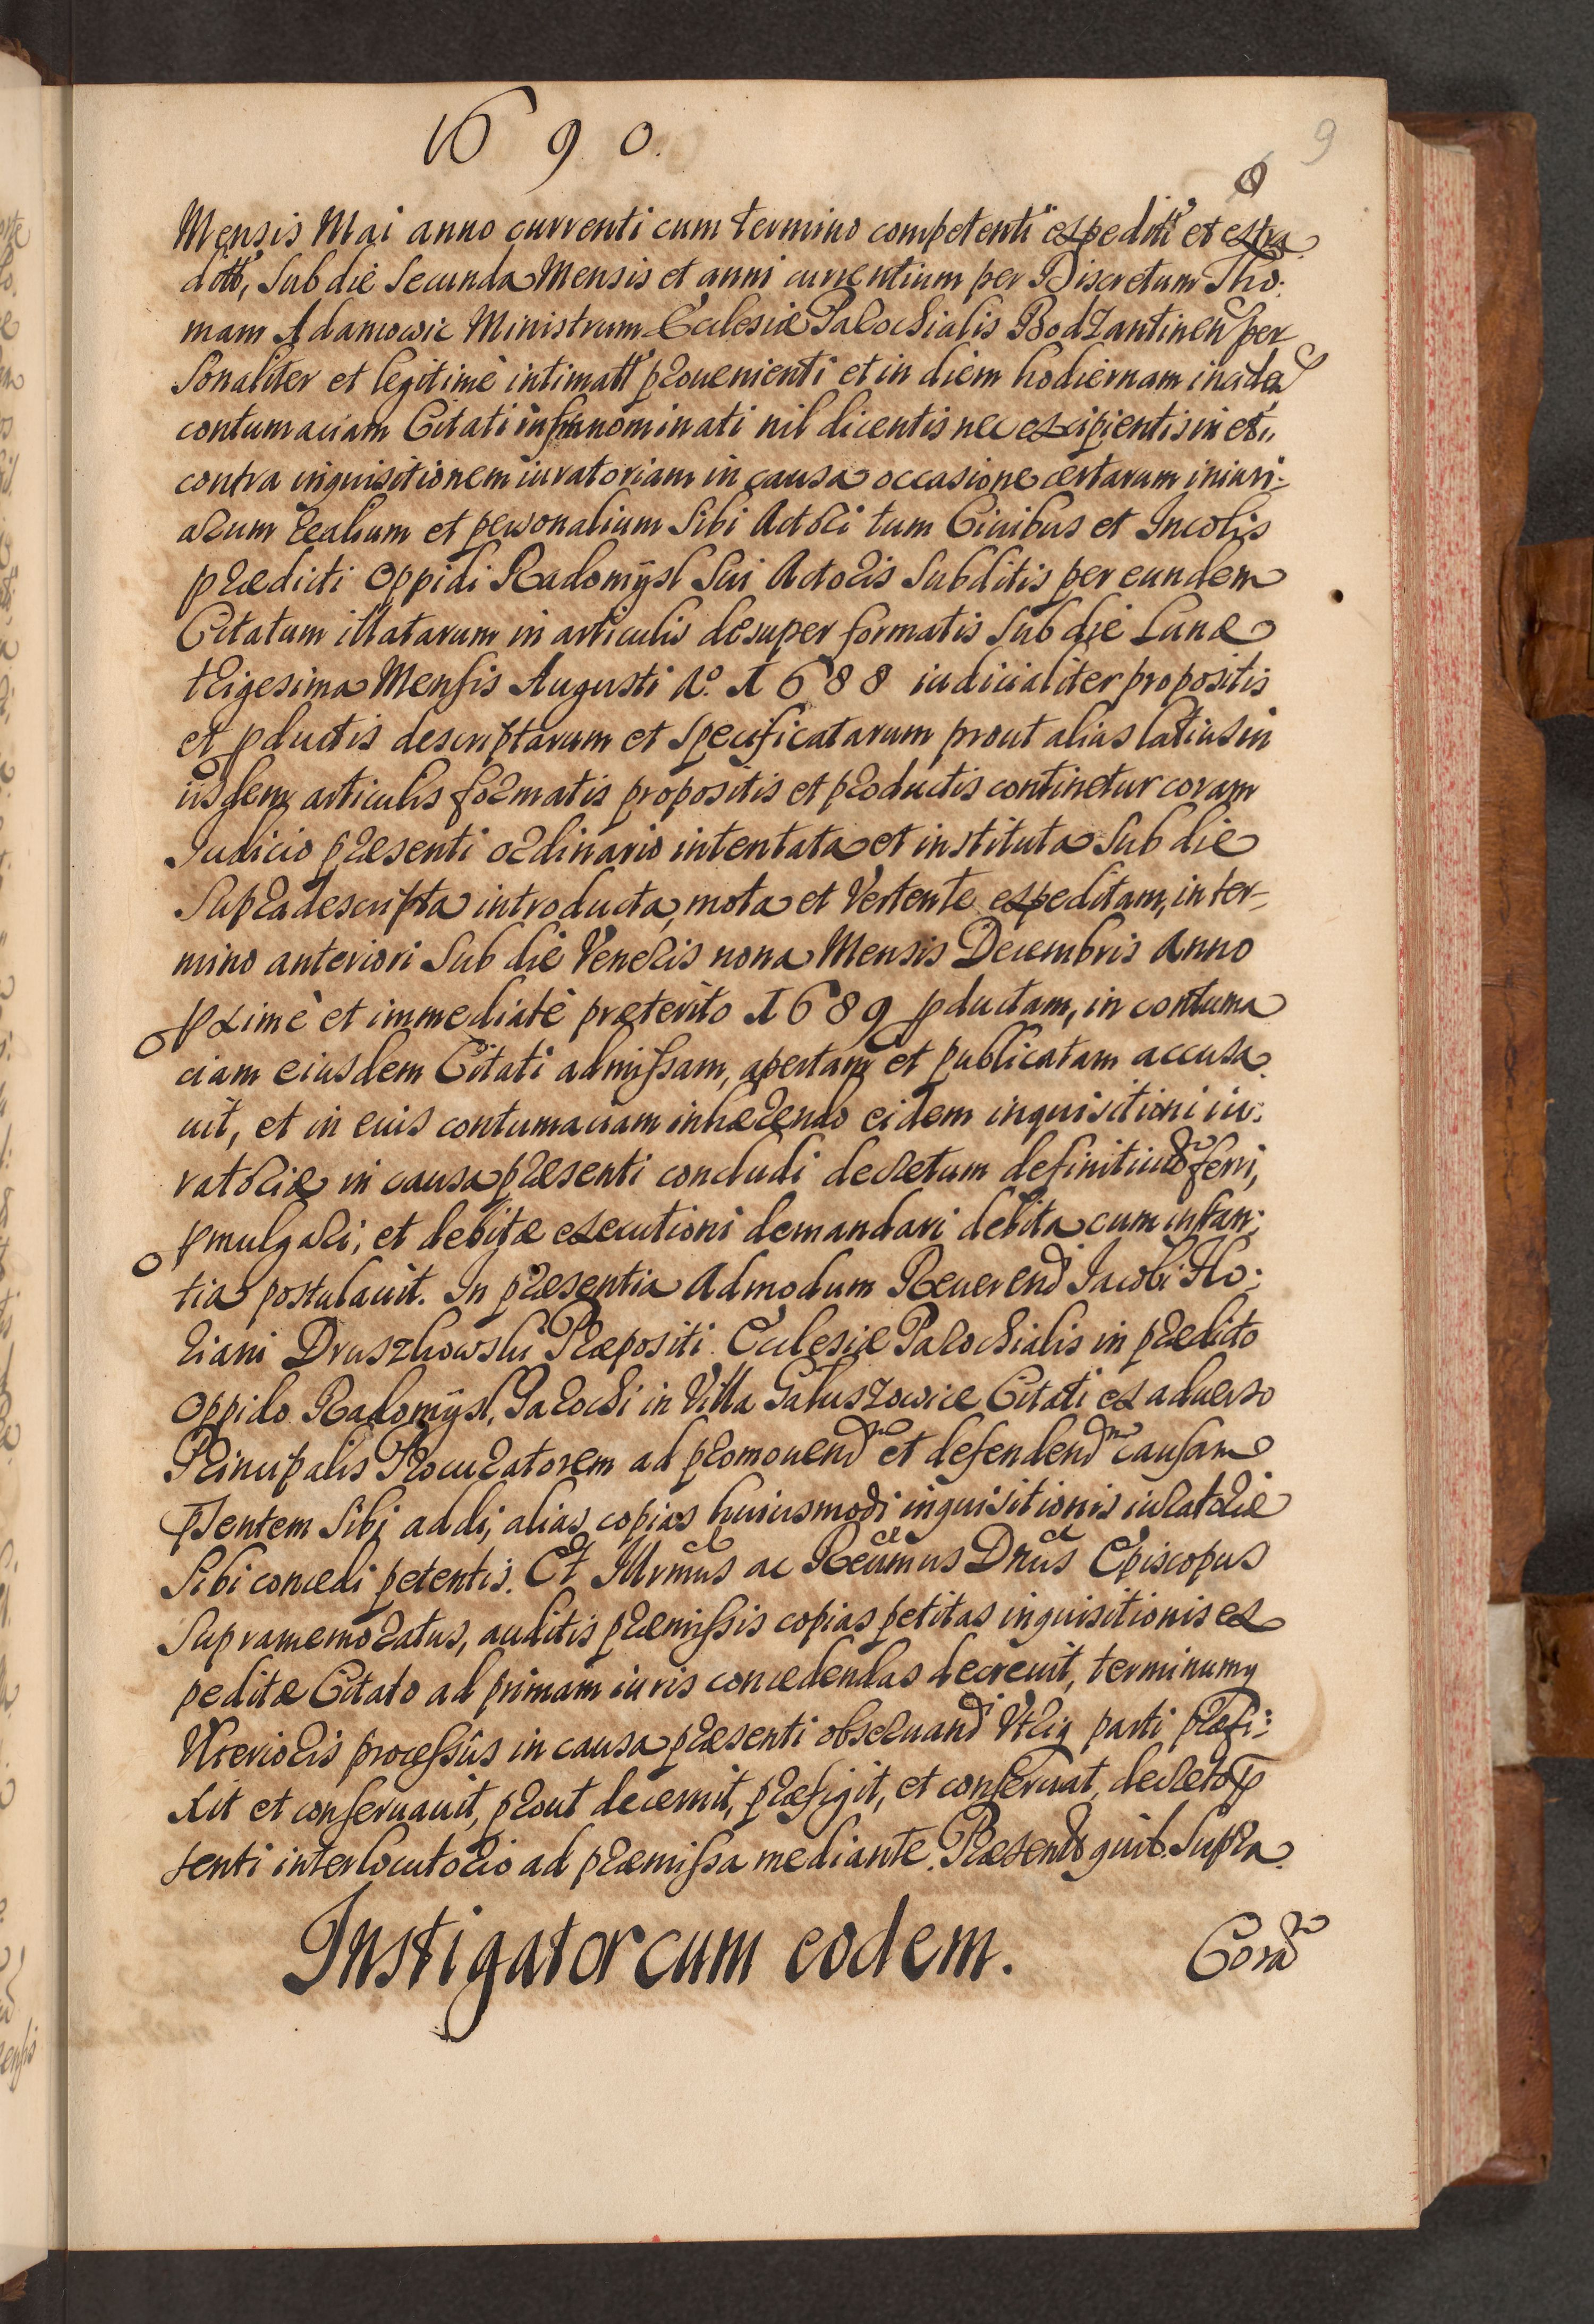 1690.
9
Mensis Mai anno currenti cum termino competenti expeditt et extra
ditt, Sub die Secunda Mensis et anni currentium per Discretum Tho:
mam Adamowic Ministrum Ecclesiæ Parochialis Bodzantinen per
Sonaliter et legitimè intimatt prouenienti et in diem hodiernam incide
contumaciam Citati infranominati nil dicentis nec excipientis in et
contra inquisitionem iuratoriam in causa occasione certarum iniuri:
arum realium et personalium Sibi Actori tum Ciuibus et Incolis
prædicti Oppidi Radomÿsl Sui Actoris Subditis per eundem
Citatum illatarum in articulis desuper formatis Sub die Lunæ
trigesima Mensis Augusti Aº. 1688 iudicialiter propositis
et pductis descriptarum et Specificatarum prout alias latius in
iisdem articulis formatis propositis et productis continetur coram
Judicio præsenti ordinario intentata et instituta Sub die
Supradescripta introducta, mota et Vertente expeditam, in ter-
mino anteriori Sub die Veneris nona Mensis Decembris Anno
pximè et immediatè præterito 1689 pductam, in contuma
ciam eiusdem Citati admissam, apertam et publicatam accusa
uit, et in euis contumaciam inhærendo eidem inquisitioni iu:
ratoriæ in causa præsenti concludi decretum definitiuũ ferri,
pmulgari, et debitæ executioni demandari debita cum instan:
tia postulauit. In præsentia Admodum Reuerend Jacobi Flo:
riani Druszkowski Præpositi Ecclesiæ Parochialis in prædicto
Oppido Radomÿsl, Parochi in Villa Galuszowice Citati ex aduerso
Principalis Procuratorem ad promouend et defendend causam
psentem Sibi addi, alias copias huiusmodi inquisitionis iuratoriæ
Sibi concedi petentis. Et Illrmus ac Reumus Dnus Episcopus
Supramemoratus, auditis præmissis copias petitas inquisitionis ex
peditæ Citato ad primam iuris concedendas decreuit, terminumq
Ulterioris processûs in causa præsenti obseruand Utriq parti præfi:
xit et conseruauit, prout decernit, præfigit, et conseruat, decreto p
senti interlocutorio ad præmissa mediante. Præsentt quib. Supra.
Instigator cum eodem.
Corã